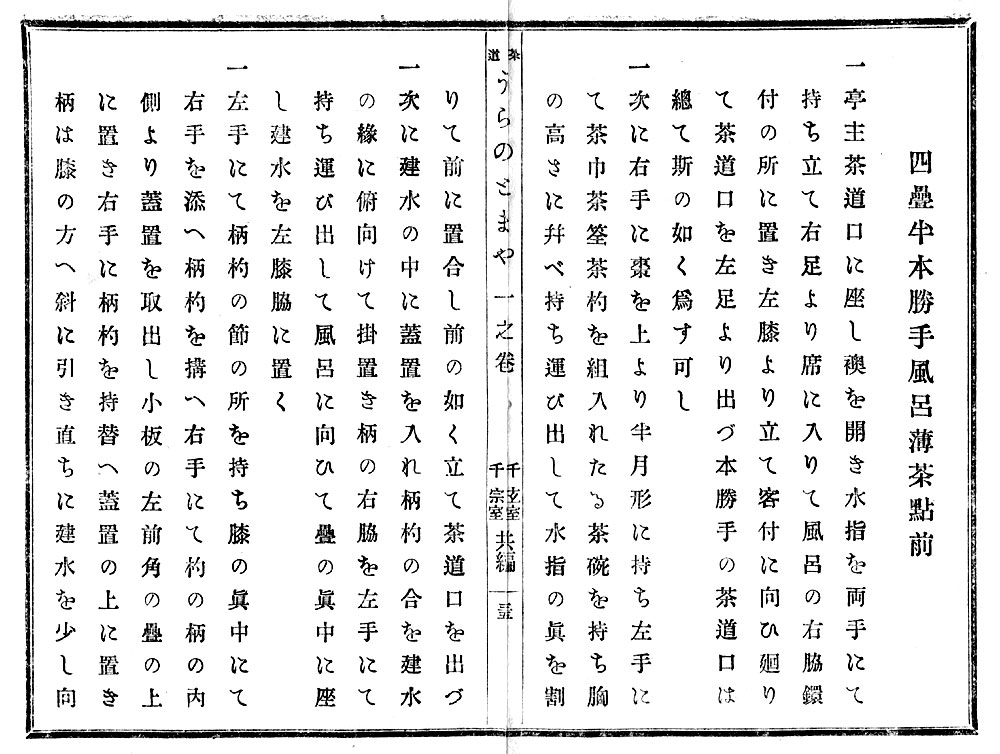 四疊半本勝手風呂薄茶點前
一亭主茶道口に座し襖を開き水指を両手にて
持ち立て右足より席に入りて風呂の右脇鐶
付の所に置き左膝より立て客付に向ひ廻り
て茶道口を左足より出づ本勝手の茶道口は
總て斯の如く爲す可し
一次に右手に棗を上より半月形に持ち左手に
て茶巾茶筌茶杓を組入れたる茶碗を持ち胸
の高さに幷べ持ち運び出して水指の眞を割
茶道うらのとまや一之卷 千玄室 千宗室 共編 一 壹
りて前に置合し前の如く立て茶道口を出づ
一次に建水の中に蓋置を入れ柄杓の合を建水
の緣に俯向けて掛置き柄の右脇を左手にて
持ち運び出して風呂に向ひて疊の眞中に座
し建水を左膝脇に置く
一左手にて柄杓の節の所を持ち膝の眞中にて
右手を添へ柄杓を搆へ右手にて杓の柄の內
側より蓋置を取出し小板の左前角の疊の上
に置き右手に柄杓を持替へ蓋置の上に置き
柄は膝の方へ斜に引き直ちに建水を少し向